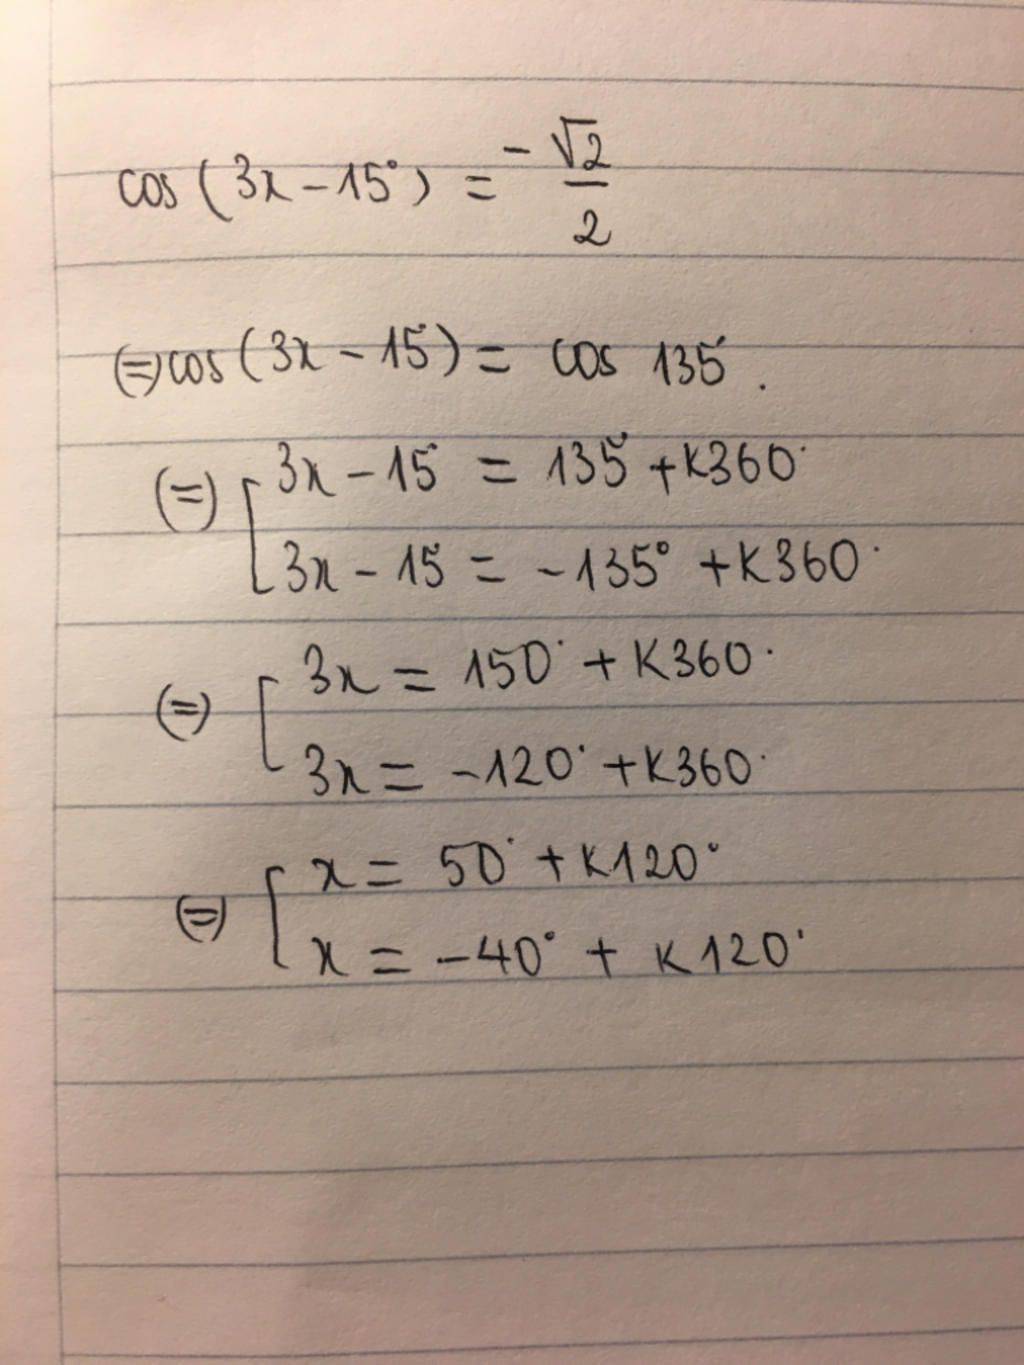 cos (3x – 15°) = -√2/2
(=) cos (3x – 15°) = cos 135°.
(=) [ 3x – 15° = 135° + K360°
3x – 15° = -135° + K360°
(=) [ 3x = 150° + K360°
3x = -120° + K360°
(=) [ x = 50° + K120°
x = -40° + K120°